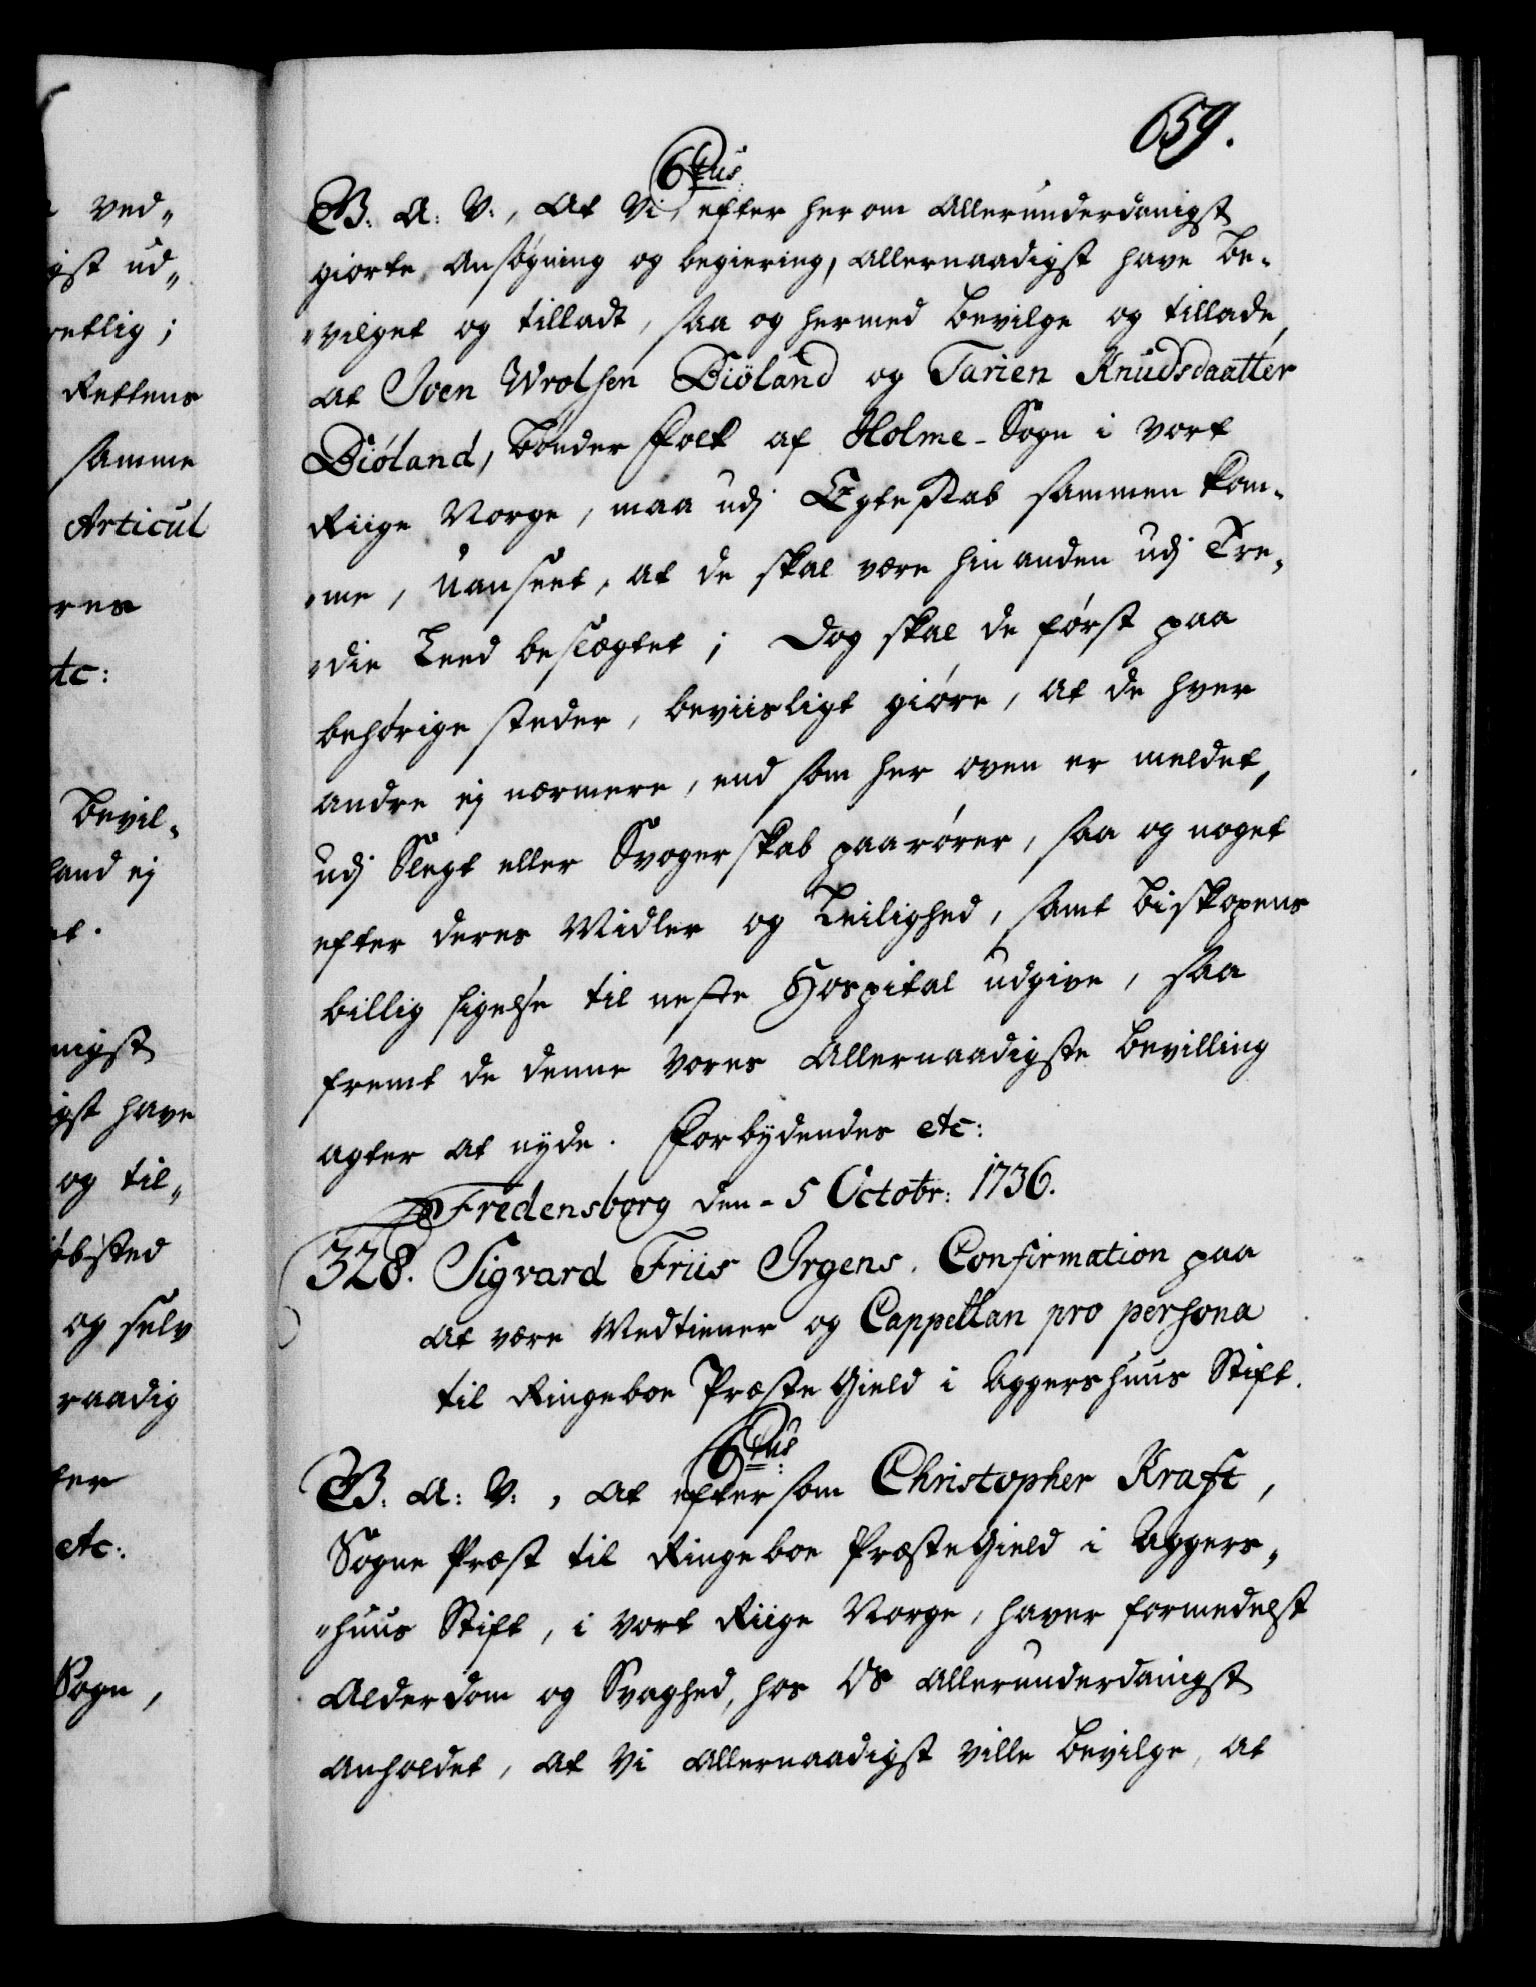 659.
6tus
G. A: V:, At Vi efter her om Allerunderdanigst
giorte Ansøgning og begiering, Allernaadigst have be-
vilget og tilladt, saa og hermed bevilge og tillade,
at Iven Wrolsen Diöland og Tarien Knudsdaatter
Diöland, bønder Folk af Holme-Sogn i vort
Riige Norge, maa udj Egteskab sammen kom-
me, uanseet, at de skal være hinanden udj Tre-
die Leed beslægtet; Dog skal de først paa
behørige steder, beviisligt giøre, at de hver
andre ej nærmere, end som her oven er meldet,
udj Slegt eller Svogerskab paarører, saa og noget
efter deres Midler og Leilighed, samt biskopens
billig sigelse til neste Hospital udgive, saa
fremt de denne vores Allernaadigste bevilling
agter at nyde. Forbydendes etc:
Fredensborg den- 5 Octobr: 1736.
328. Sigvard Friis Irgens, Confirmation paa
at være Medtiener og Cappellan pro persona
til Ringeboe PræsteGield i Aggershuus Stift.
6tus
G. A: V:, at eftersom Christopher Kraft,
Sogne Præst til Ringeboe PræsteGield i Aggers-
huus Stift, i vort Riige Norge, haver formedelst
Alderdom og Svaghed, hos Os allerunderdanigst
anholdet, at Vi Allernaadigst ville bevilge, at
ved-
ud-
Rettens
samme
Articul
etc:
bevil-
have
og til-
og selv
etc:
Sogn,